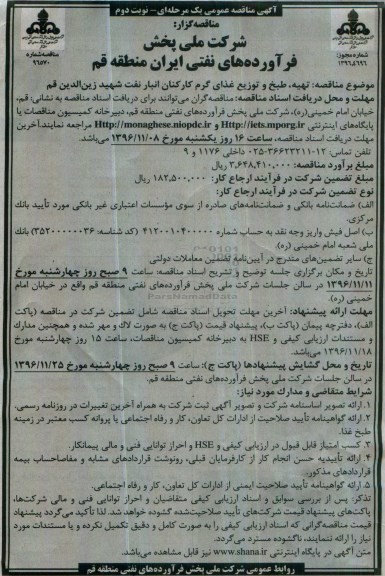 آگهی مناقصه عمومی یک مرحله‌ای - نوبت دوم
مناقصه‌گزار:
شرکت ملی پخش
فرآورده‌های نفتی ایران منطقه قم
شماره مجوز:
۱۳۹۶،۸۶۹۶
مناقصه‌شماره
۹۶۵۷۰
موضوع مناقصه: تهیه، طبخ و توزیع غذای گرم کارکنان انبار نفت شهید زین‌الدین قم
مهلت و محل دریافت اسناد مناقصه: مناقصه‌گران می‌توانند برای دریافت اسناد مناقصه به نشانی: قم،
خیابان امام خمینی(ره)، شرکت ملی پخش فرآورده‌های نفتی منطقه قم، دبیرخانه کمیسیون مناقصات یا
پایگاه‌های اینترنتی Http://iets.mporg.ir و Http://monaghese.niopdc.ir مراجعه نمایند. آخرین
مهلت دریافت اسناد مناقصه، ساعت ۱۶ روز یکشنبه مورخ ۱۳۹۶/۱۱/۰۸ می‌باشد.
تلفن تماس: ۱۲-۳۶۶۲۳۲۱۱-۰۲۵ داخلی ۱۱۷۶ و ۹
مبلغ برآورد مناقصه: ۳,۶۴۸,۴۱۰,۰۰۰ ریال
مبلغ تضمین شرکت در فرآیند ارجاع کار: ۱۸۲,۵۰۰,۰۰۰ ریال
نوع تضمین شرکت در فرآیند ارجاع کار:
الف) ضمانت‌نامه بانکی و ضمانت‌نامه‌های صادره از سوی مؤسسات اعتباری غیر بانکی مورد تأیید بانک
مرکزی.
ب) اصل فیش واریز وجه نقد به حساب شماره ۴۱۲۰۰۱۰۴۰۰۰۰۰ (کد شناسه: ۳۵۲۰۰۰۰۰۰۳۶) بانک
ملی شعبه امام خمینی (ره).
ج) سایر تضمین‌های مندرج در آیین‌نامه تضمین معاملات دولتی
تاریخ و مکان برگزاری جلسه توضیح و تشریح اسناد مناقصه: ساعت ۹ صبح روز چهارشنبه مورخ
۱۳۹۶/۱۱/۱۱ در سالن جلسات شرکت ملی پخش فرآورده‌های نفتی منطقه قم واقع در خیابان امام
خمینی (ره).
مهلت ارائه پیشنهاد: آخرین مهلت تحویل اسناد مناقصه شامل تضمین شرکت در مناقصه (پاکت
الف)، دفترچه پیمان (پاکت ب)، پیشنهاد قیمت (پاکت ج) به صورت لاک و مهر شده و همچنین مدارک
و مستندات ارزیابی کیفی و HSE به دبیرخانه کمیسیون مناقصات، ساعت ۱۵ روز چهارشنبه مورخ
۱۳۹۶/۱۱/۱۸ می‌باشد.
تاریخ و محل گشایش پیشنهادها (پاکت ج): ساعت ۹ صبح روز چهارشنبه مورخ ۱۳۹۶/۱۱/۲۵
در سالن جلسات شرکت ملی پخش فرآورده‌های نفتی منطقه قم.
شرایط متقاضی و مدارک مورد نیاز:
۱. ارائه تصویر اساسنامه شرکت و تصویر آگهی ثبت شرکت به همراه آخرین تغییرات در روزنامه رسمی.
۲. ارائه گواهینامه تأیید صلاحیت از ادارات کل تعاون، کار و رفاه اجتماعی یا پروانه کسب معتبر در زمینه
طبخ غذا.
۳. کسب امتیاز قابل قبول در ارزیابی کیفی و HSE و احراز توانایی فنی و مالی پیمانکار.
۴. ارائه تأییدیه حسن انجام کار از کارفرمایان قبلی، رونوشت قراردادهای مشابه و مفاصاحساب بیمه
قراردادهای مذکور.
۵. ارائه گواهینامه تأیید صلاحیت ایمنی از ادارات کل تعاون، کار و رفاه اجتماعی.
تذکر: پس از بررسی سوابق و اسناد ارزیابی کیفی متقاضیان و احراز توانایی فنی و مالی شرکت‌ها،
پاکت‌های پیشنهاد قیمت شرکت‌های تأیید صلاحیت‌شده گشوده خواهد شد. لذا تأکید می‌گردد پیشنهاد
قیمت مناقصه‌گرانی که اسناد ارزیابی کیفی را به صورت کامل و دقیق تکمیل نکرده و یا مستندات مورد
نیاز را ارائه ننمایند، ناگشوده مسترد می‌گردد.
متن آگهی در پایگاه اینترنتی www.shana.ir نیز قابل مشاهده می‌باشد.
روابط عمومی شرکت ملی پخش فرآورده‌های نفتی منطقه قم
ParsNamadData